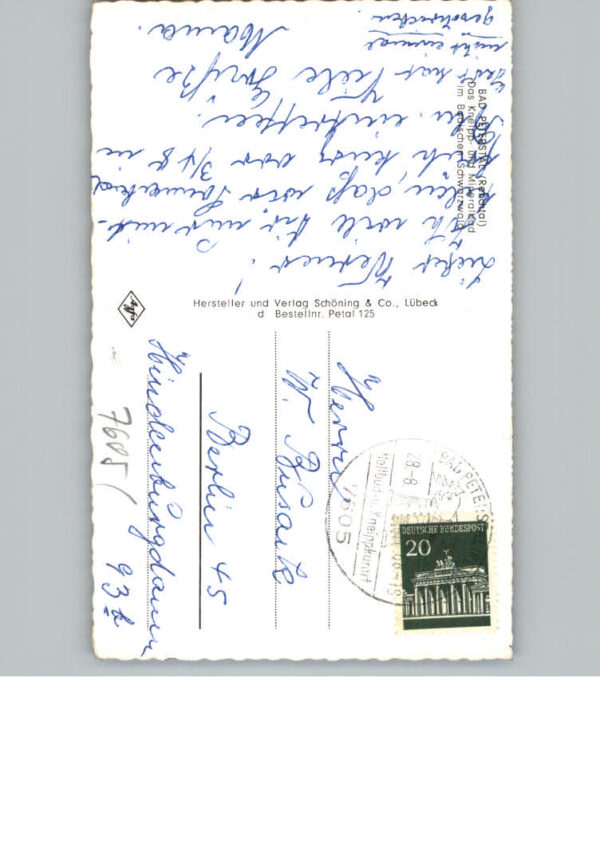 BAD PETERSTAL (Renchtal)
Das Kneipp- und Mineralbad
im Badischen Schwarzwald
Lieber Werner!
Ich will Dir nur mit-
teilen, daß wir Sonnabend
kurz vor 3/4 8 in
eintreffen.
Viele Grüße
Mama.
Du hast
nicht einmal
geschrieben
Hersteller und Verlag Schöning & Co., Lübeck
d Bestellnr. Petal 125
Herrn
W. Busack
Berlin 45
Hindenburgdamm
93 b
7605/
BAD PETERS
28.-8
7605
Kneippkurort
DEUTSCHE BUNDESPOST
20
Agfa